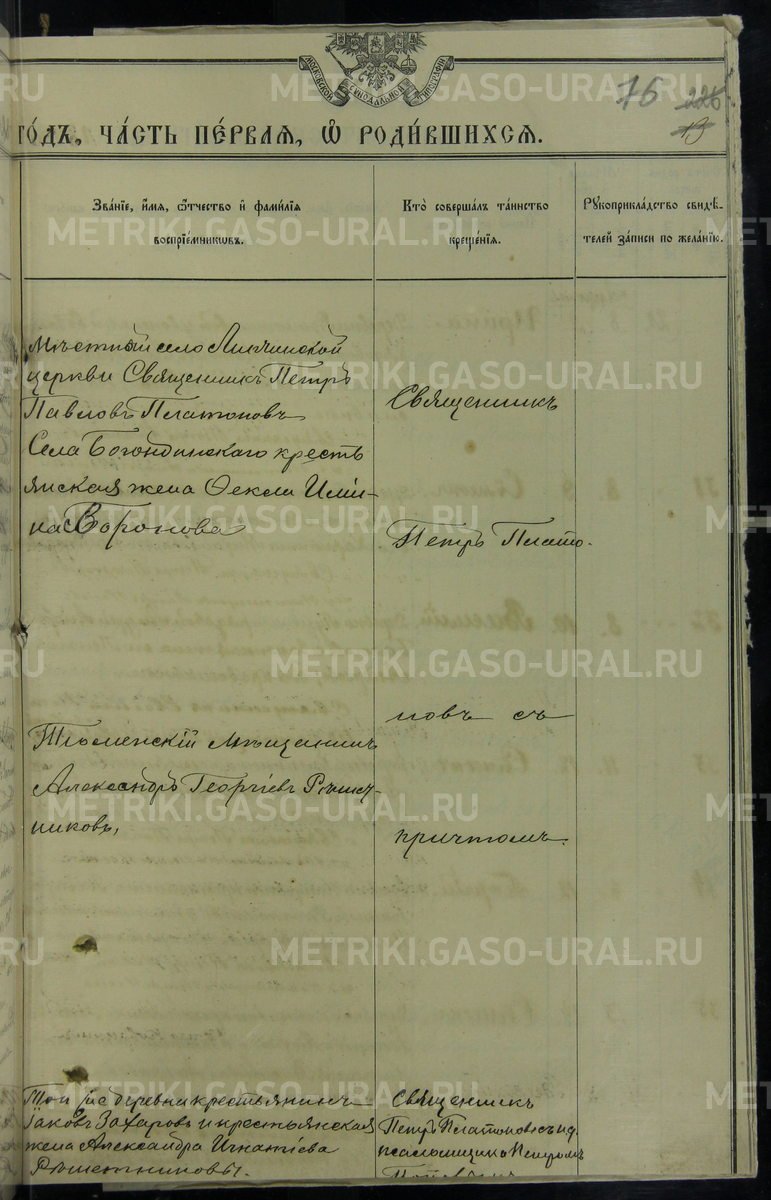 МОСКОВСКОЙ СѴНОДАЛЬНОЙ ТИПОГРАФІИ
76 226
13
го́дъ, ча́сть пе́рваѧ, ѡ҆ роди́вшихсѧ.
Зва́нїе, и҆́мѧ, ѻ҆́тчество и҆ фами́лїѧ
воспрїе́мникѡвъ.
Кто̀ соверша́лъ та́инство
креще́нїѧ.
Рꙋкоприкла́дство свидѣ́-
телей за́писи по жела́нїю.
Мѣстный село Липчинской
церкви Священникъ Петръ
Павловъ Платоновъ
Села Богандинскаго кресть
янская жена Ѳекла Ильи-
на Воронова
Священникъ
Петръ Плато-
новъ съ
причтомъ.
Тюменскій мѣщанинъ
Александръ Георгіевъ Рѣшет-
никовъ,
Той же деревни крестьянинъ
Іаковъ Захаровъ и крестьянская
жена Александра Игнатіева
Рѣшетниковы.
Священникъ
Петръ Платоновъ съ и.д.
псаломщика Петромъ
METRIKI.GASO-URAL.RU